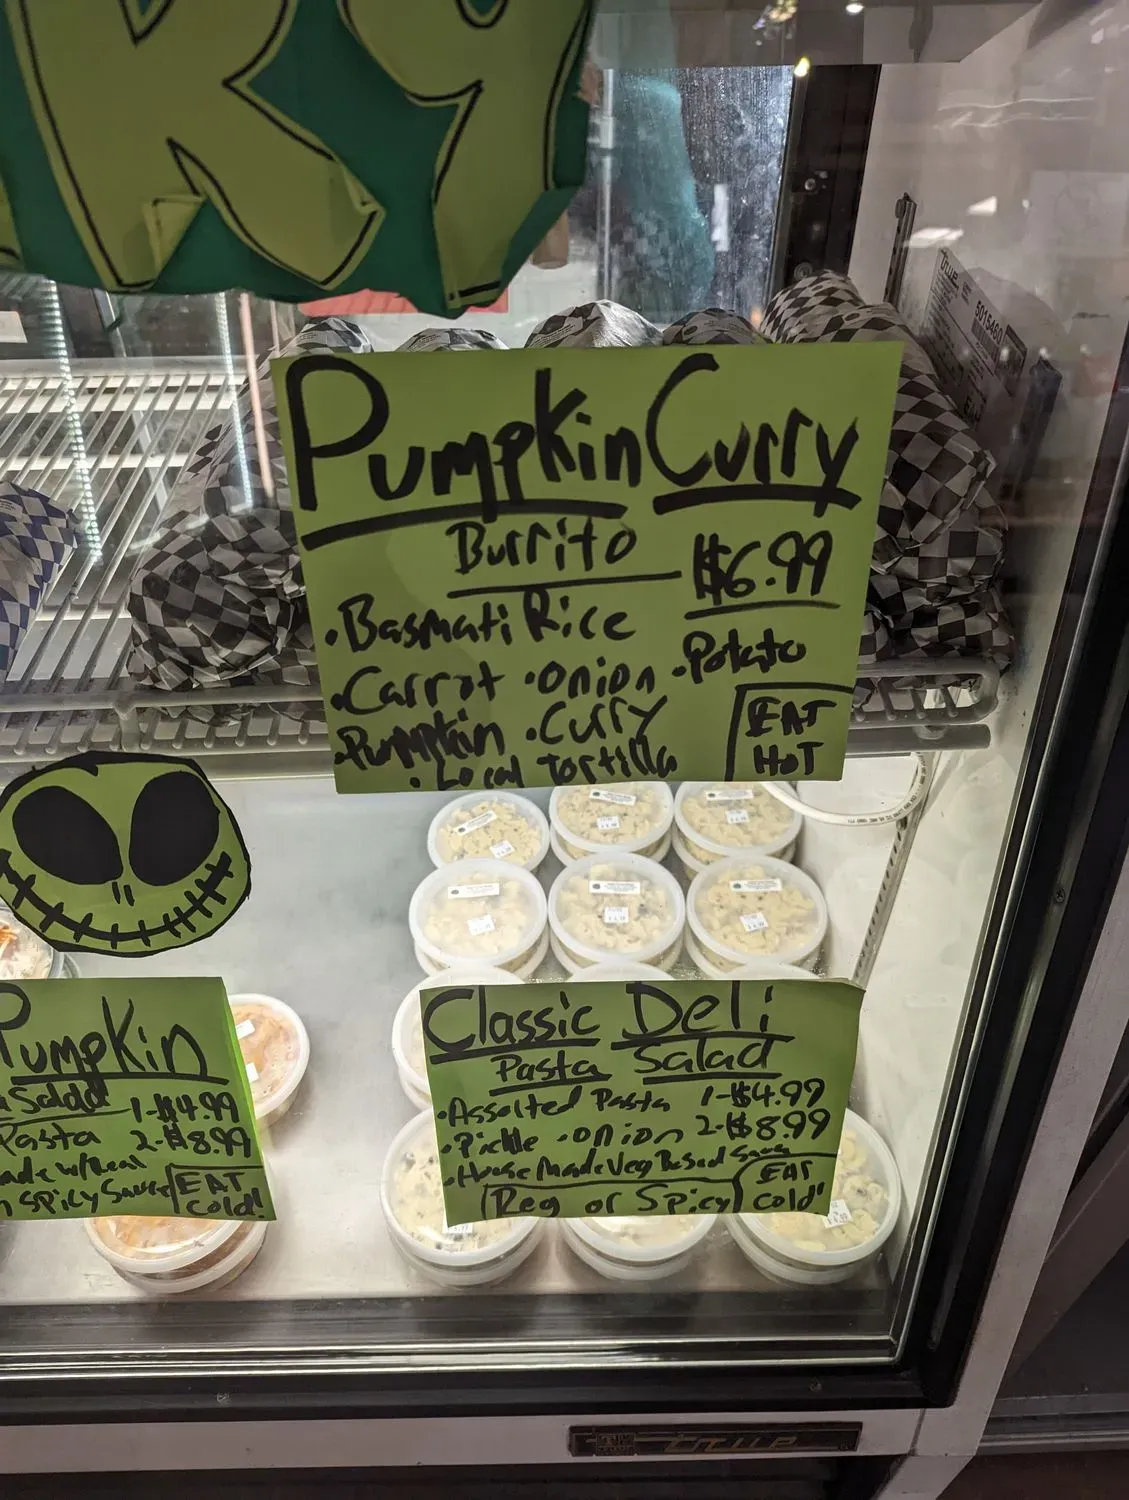 RY
Pumpkin Curry
Burrito $6.99
• Basmati Rice
• Carrot • Onion • Potato
• Pumpkin • Curry
• Local Tortilla
EAT
HOT
True
5015460
Pumpkin
Salad 1-$4.99
Pasta 2-$8.99
Spicy Sauce
EAT
Cold!
Classic Deli
Pasta Salad
• Assorted Pasta 1-$4.99
• Pickle • Onion 2-$8.99
• House Made Veg Based Sauce
Reg or Spicy
EAT
Cold!
True